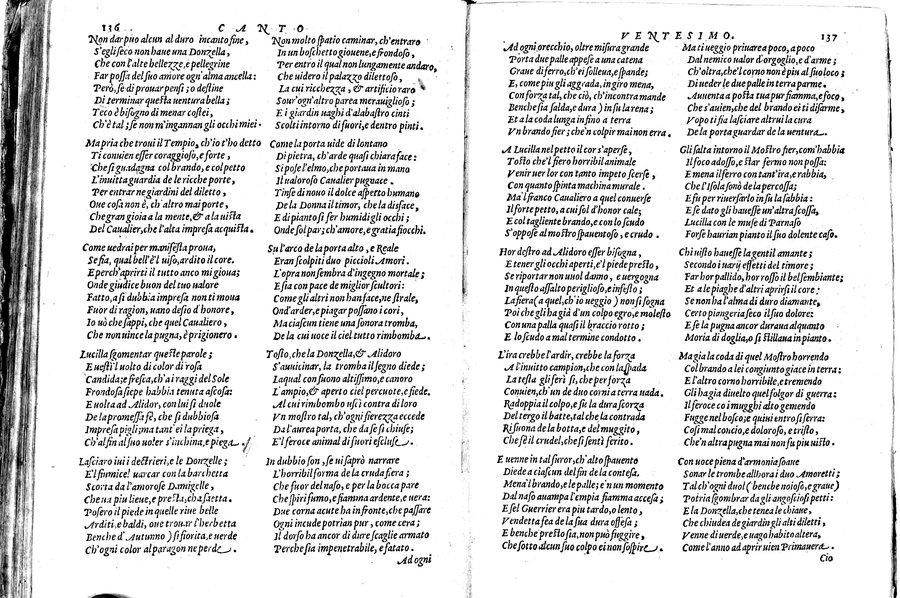 136 CANTO
Non dar puo alcun al duro incanto fine,
S'egli seco non haue una Donzella,
Che con l'alte bellezze, e pellegrine
Far possa del suo amore ogn'alma ancella:
Però, se di prouar pensi; o destine
Di terminar questa uentura bella;
Teco è bisogno di menar costei,
Ch'è tal; se non m'ingannan gli occhi miei.
Ma pria che troui il Tempio, ch'io t'ho detto
Ti conuien esser coraggioso, e forte,
Che si guadagna col brando, e col petto
L'inuitta guardia de le ricche porte,
Per entrar ne giardini del diletto,
Oue cosa non è, ch'altro mai porte,
Che gran gioia a la mente, & a la uista
Del Caualier, che l'alta impresa acquista.
Come uedrai per manifesta proua,
Se fia, qual bell'è l uiso, ardito il core.
E perch'aprirti il tutto anco mi gioua;
Onde giudice buon del tuo ualore
Fatto, a si dubbia impresa non ti moua
Fuor di ragion, uano desio d'honore,
Io uò che sappi, che quel Caualiero,
Che non uince la pugna, è prigionero.
Lucilla sgomentar queste parole;
E uesti l uolto di color di rosa
Candida; e fresca, ch'a i raggi del Sole
Frondosa siepe habbia tenuta ascosa:
E uolta ad Alidor, con lui si duole
De la promessa fè, che si dubbiosa
Impresa pigli; ma tant'ei la priega,
Ch'al fin al suo uoler s'inchina, e piega.
Lasciaro iui i destrieri, e le Donzelle;
E'l fiumicel uarcar con la barchetta
Scorta da l'amorose Damigelle,
Che ua piu lieue, e presta, che saetta.
Posero il piede in quelle riue belle
Arditi, e baldi, oue trouar l'herbetta
Benche d'Autunno) si fiorita, e uerde
Ch'ogni color al paragon ne perde.
Non molto spatio caminar, ch'entraro
In un boschetto giouene, e frondoso,
Per entro il qual non lungamente andaro,
Che uidero il palazzo dilettoso,
La cui ricchezza, & artificio raro
Sour'ogn'altro parea merauiglioso;
E i giardin uaghi d'alabastro cinti
Scolti intorno di fuori, e dentro pinti.
Come la porta uide di lontano
Di pietra, ch'arde quasi chiara face:
Si pose l'elmo, che portaua in mano
Il ualoroso Caualier pugnace.
Tinse di nouo il dolce aspetto humano
De la Donna il timor, che la disface,
E di pianto si fer humidi gli occhi;
Onde sol par; ch'amore, e gratia fiocchi.
Su l'arco de la porta alto, e Reale
Eran scolpiti duo piccioli Amori.
L'opra non sembra d'ingegno mortale;
E sia con pace de miglior scultori:
Come gli altri non han face, ne strale,
Ond'arder, e piagar possano i cori,
Ma ciascun tiene una sonora tromba,
De la cui uoce il ciel tutto rimbomba.
Tosto, che la Donzella, & Alidoro
S'auuicinar, la tromba il segno diede;
La qual con suono altissimo, e canoro
L'ampio, & aperto ciel percuote, e fiede.
Al cui rimbombo uscì contra di loro
Vn mostro tal, ch'ogni fierezza eccede
Da l'aurea porta, che da se si chiuse;
E'l feroce animal di fuori escluse.
In dubbio son, se ui saprò narrare
L'horribil forma de la cruda fiera;
Che fuor del naso, e per la bocca pare
Che spiri fumo, e fiamma ardente, e uera:
Due corna acute ha in fronte, che passare
Ogni incude potrian pur, come cera;
Il dorso ha ancor di dure scaglie armato
Perche sia impenetrabile, e fatato.
Ad ogni
VENTESIMO. 137
Ad ogni orecchio, oltre misura grande
Porta due palle appese a una catena
Graue di ferro, ch'ei solleua, e spande;
E, come piu gli aggrada, in giro mena,
Con forza tal, che ciò, ch'incontra mande
Benche sia salda, e dura) in su la rena;
Et a la coda lunga in fino a terra
Vn brando fier; che'n colpir mai non erra.
A Lucilla nel petto il cor s'aperse,
Tosto che'l fiero horribil animale
Venir uer lor con tanto impeto scerse,
Con quanto spinta machina murale.
Ma'l franco Caualiero a quel conuerse
Il forte petto, a cui sol d'honor cale;
E col tagliente brando, e con lo scudo
S'oppose al mostro spauentoso, e crudo.
Hor destro ad Alidoro esser bisogna,
E tener gli occhi aperti, e'l piede presto,
Se riportar non uuol danno, e uergogna
In questo assalto periglioso, e infesto;
La fiera (a quel, ch'io ueggio) non si sogna
Poi che gli hà già d'un colpo egro, e molesto
Con una palla quasi il braccio rotto;
E lo scudo a mal termine condotto.
L'ira crebbe l'ardir, crebbe la forza
A l'inuitto campion, che con la spada
La testa gli ferì sì, che per forza
Conuien, ch'un de duo corni a terra uada.
Radoppia il colpo, e su la dura scorza
Del tergo il batte, tal che la contrada
Risuona de la botta, e del muggito,
Che fè il crudel, che si sentì ferito.
E uenne in tal furor, ch'alto spauento
Diede a ciascun del fin de la contesa.
Mena'l brando, e le palle; e'n un momento
Dal naso auampa l'empia fiamma accesa;
E se'l Guerrier era piu tardo, o lento,
Vendetta fea de la sua dura offesa;
E benche presto sia, non può fuggire,
Che sotto alcun suo colpo ei non sospire.
Ma ti ueggio priuar ea poco, a poco
Dal nemico ualor d'orgoglio, e d'arme;
Ch'oltra, che'l corno non è piu al suo loco;
Di ueder le due palle in terra parme.
Auenta a posta tua pur fiamma, e foco,
Che s'auien, che del brando ei ti disarme,
Vopo ti fia lasciare altrui la cura
De la porta guardar de la uentura.
Gli salta intorno il Mostro fier, com'habbia
Il foco adosso, e star fermo non possa:
E mena il ferro con tant'ira, e rabbia,
Che l'Isola sonò de la percossa;
E fu per riuersarlo in su la sabbia:
E se dato gli hauesse un'altra scossa,
Lucilla con le muse di Parnaso
Forse haurian pianto il suo dolente caso.
Chi uisto hauesse la gentil amante;
Secondo i uarij effetti del timore;
Far hor pallido, hor rosso il bel sembiante;
Et a le piaghe d'altri aprirsi il core:
Se non ha l'alma di duro diamante,
Certo piangeria seco il suo dolore:
E se la pugna ancor duraua alquanto
Moria di doglia, o si stillaua in pianto.
Ma gia la coda di quel Mostro horrendo
Col brando a lei congiunto giace in terra:
E l'altro corno horribile, e tremendo
Gli hagia diuelto quel folgor di guerra:
Il feroce co i mugghi alto gemendo
Fugge nel bosco; e quini entro si serra:
Cosi mal concio, e doloroso, e tristo,
Che'n altra pugna mai non fu piu uisto.
Con uoce piena d'armonia soaue
Sonar le trombe allhora i duo Amoretti;
Tal ch'ogni duol (benche noioso, e graue)
Potria sgombrar da gli angosciosi petti:
E la Donzella, che tenea le chiaue,
Che chiudea de giardin gli alti diletti,
Venne di uerde, e uago habito altera,
Come l'anno ad aprir uien Primauera.
Cio